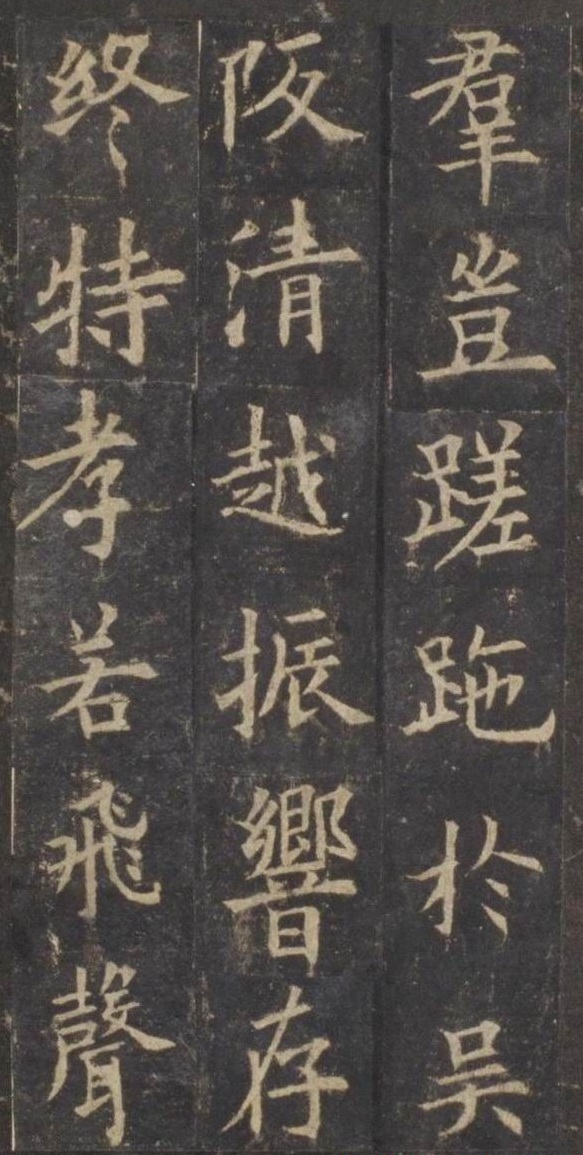 羣豈蹉跎於吴
阪清越振響存
終特孝若飛聲